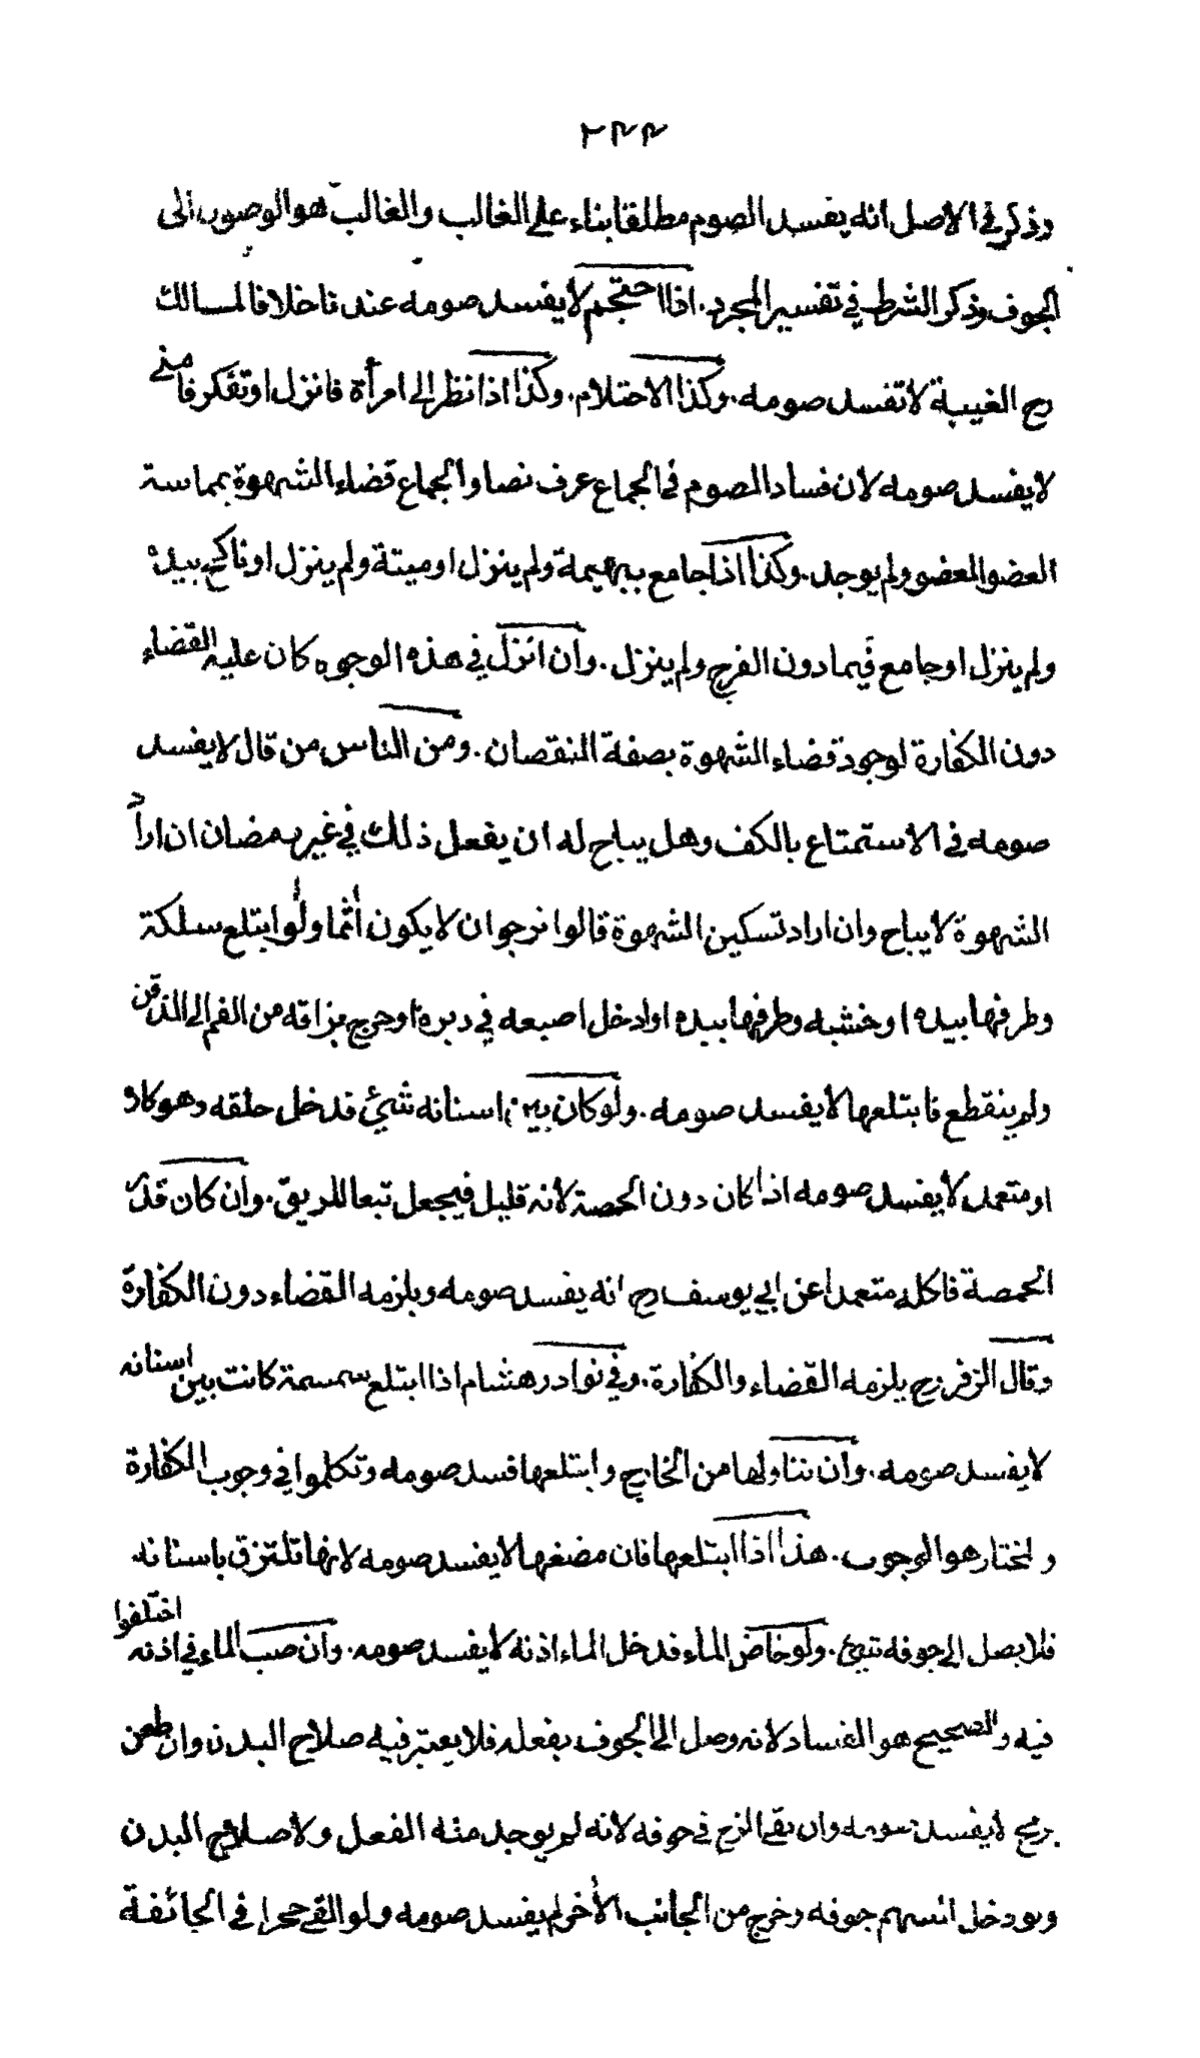 ٢٤٤
وذكر في الاصل انه يفسد الصوم مطلقا بناء على الغالب والغالب هو الوصول الى
الجوف وذكر الشرط في تفسير المجرد. اذا احتجم لا يفسد صومه عندنا خلافا لمالك
رح الغيبة لا تفسد صومه. وكذا الاحتلام. وكذا اذا نظر الى امرأة فانزل او تفكر فامنى
لا يفسد صومه لان فساد الصوم في الجماع عرف نصا والجماع قضاء الشهوة بمماسة
العضو العضو ولم يوجد. وكذا اذا جامع بهيمة ولم ينزل او ميتة ولم ينزل او ناكح بيده
ولم ينزل او جامع فيما دون الفرج ولم ينزل. وان انزل في هذه الوجوه كان عليه القضاء
دون الكفارة لوجود قضاء الشهوة بصفة النقصان. ومن الناس من قال لا يفسد
صومه في الاستمتاع بالكف وهل يباح له ان يفعل ذلك في غير رمضان ان اراد
الشهوة لا يباح وان اراد تسكين الشهوة قالوا نرجو ان لا يكون آثما ولو ابتلع سلكة
وطرفها بيده او خشبه وطرفها بيده او ادخل اصبعه في دبره او خرج بزاقه من الفم الى الذقن
ولم ينقطع فابتلعها لا يفسد صومه. ولو كان بين اسنانه شيئ فدخل حلقه وهو كاره
او متعمد لا يفسد صومه اذا كان دون الحمصة لانه قليل فيجعل تبعا للريق. وان كان قدر
الحمصة فاكله متعمدا عن ابي يوسف رح انه يفسد صومه ويلزمه القضاء دون الكفارة
وقال الزفر رح يلزمه القضاء والكفارة. وفي نوادر هشام اذا ابتلع سمسمة كانت بين اسنانه
لا يفسد صومه. وان تناولها من الخارج وابتلعها فسد صومه وتكلموا في وجوب الكفارة
والمختار هو الوجوب. هذا اذا ابتلعها فان مضغها لا يفسد صومه لانها تلتزق باسنانه
فلا يصل الى جوفه شيئ. ولو خاض الماء فدخل الماء اذنه لا يفسد صومه. وان صب الماء في اذنه اختلفوا
فيه والصحيح هو الفساد لانه وصل الى الجوف بفعله فلا يعتبر فيه صلاح البدن وان طعن
برمح لا يفسد صومه وان بقي الزج في جوفه لانه لم يوجد منه الفعل ولا صلاح البدن
ولو دخل السهم جوفه وخرج من الجانب الأخر لم يفسد صومه ولو القي حجرا في الجائفة